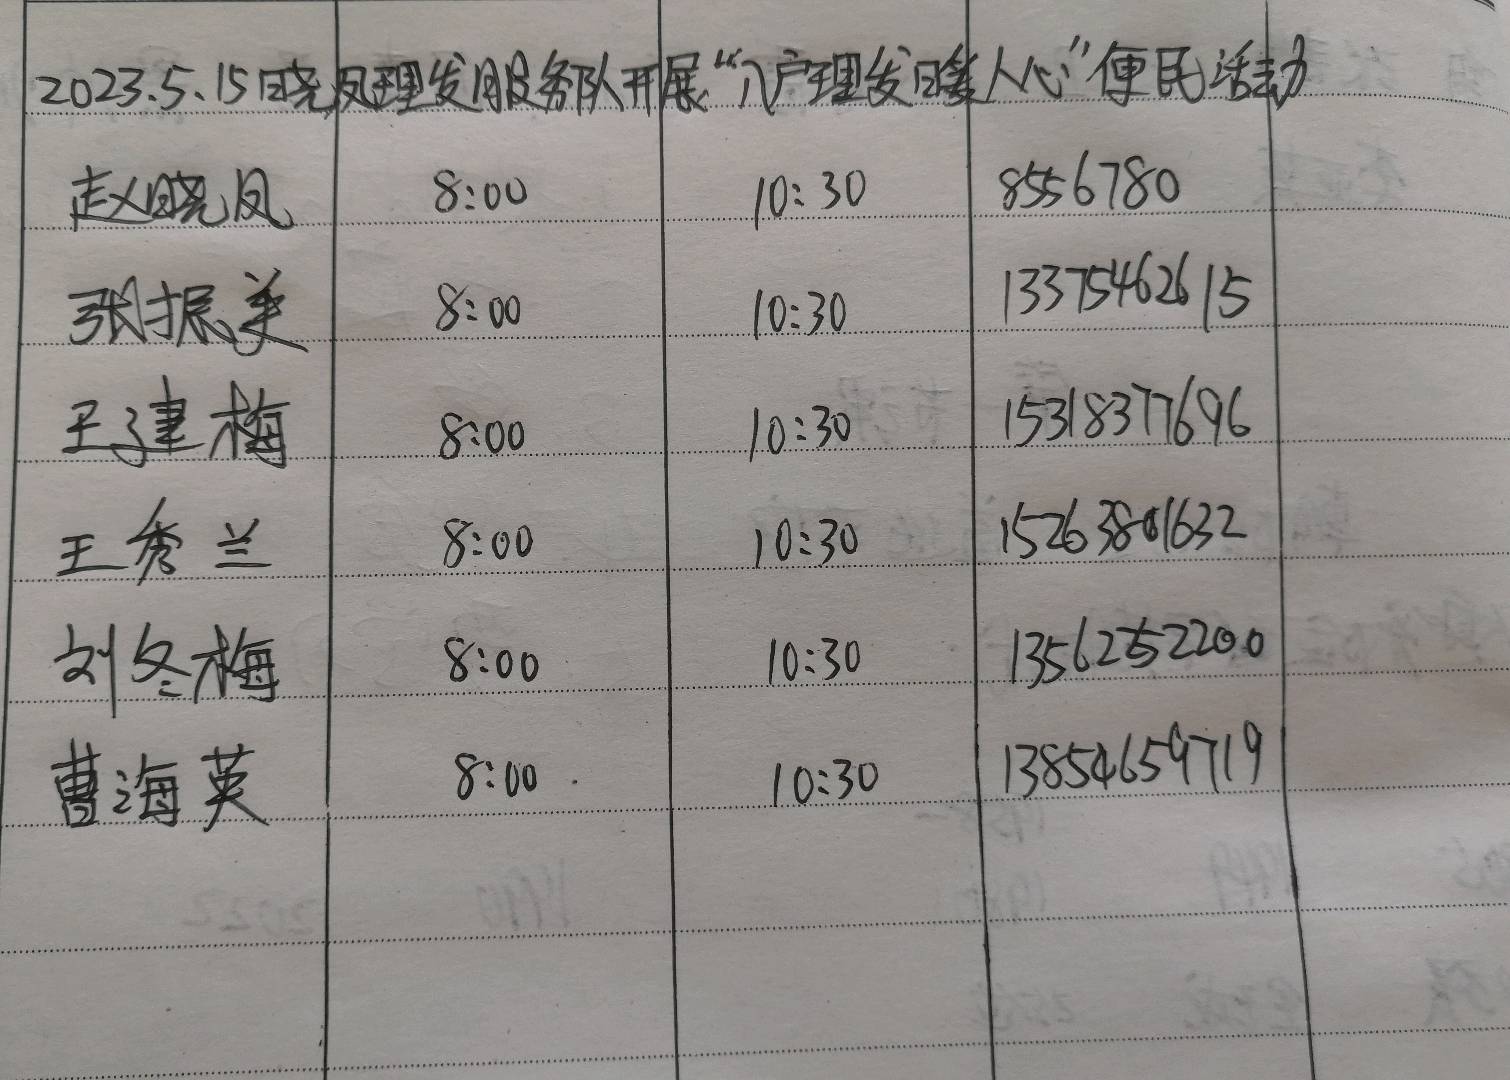 2023.5.15日晓凤理发服务队开展“入户理发暖人心”便民活动
赵晓凤 8:00 10:30 8556780
张振美 8:00 10:30 13375462615
王建梅 8:00 10:30 15318377696
王秀兰 8:00 10:30 15263801632
刘冬梅 8:00 10:30 13562752200
曹海英 8:00 10:30 13854659719